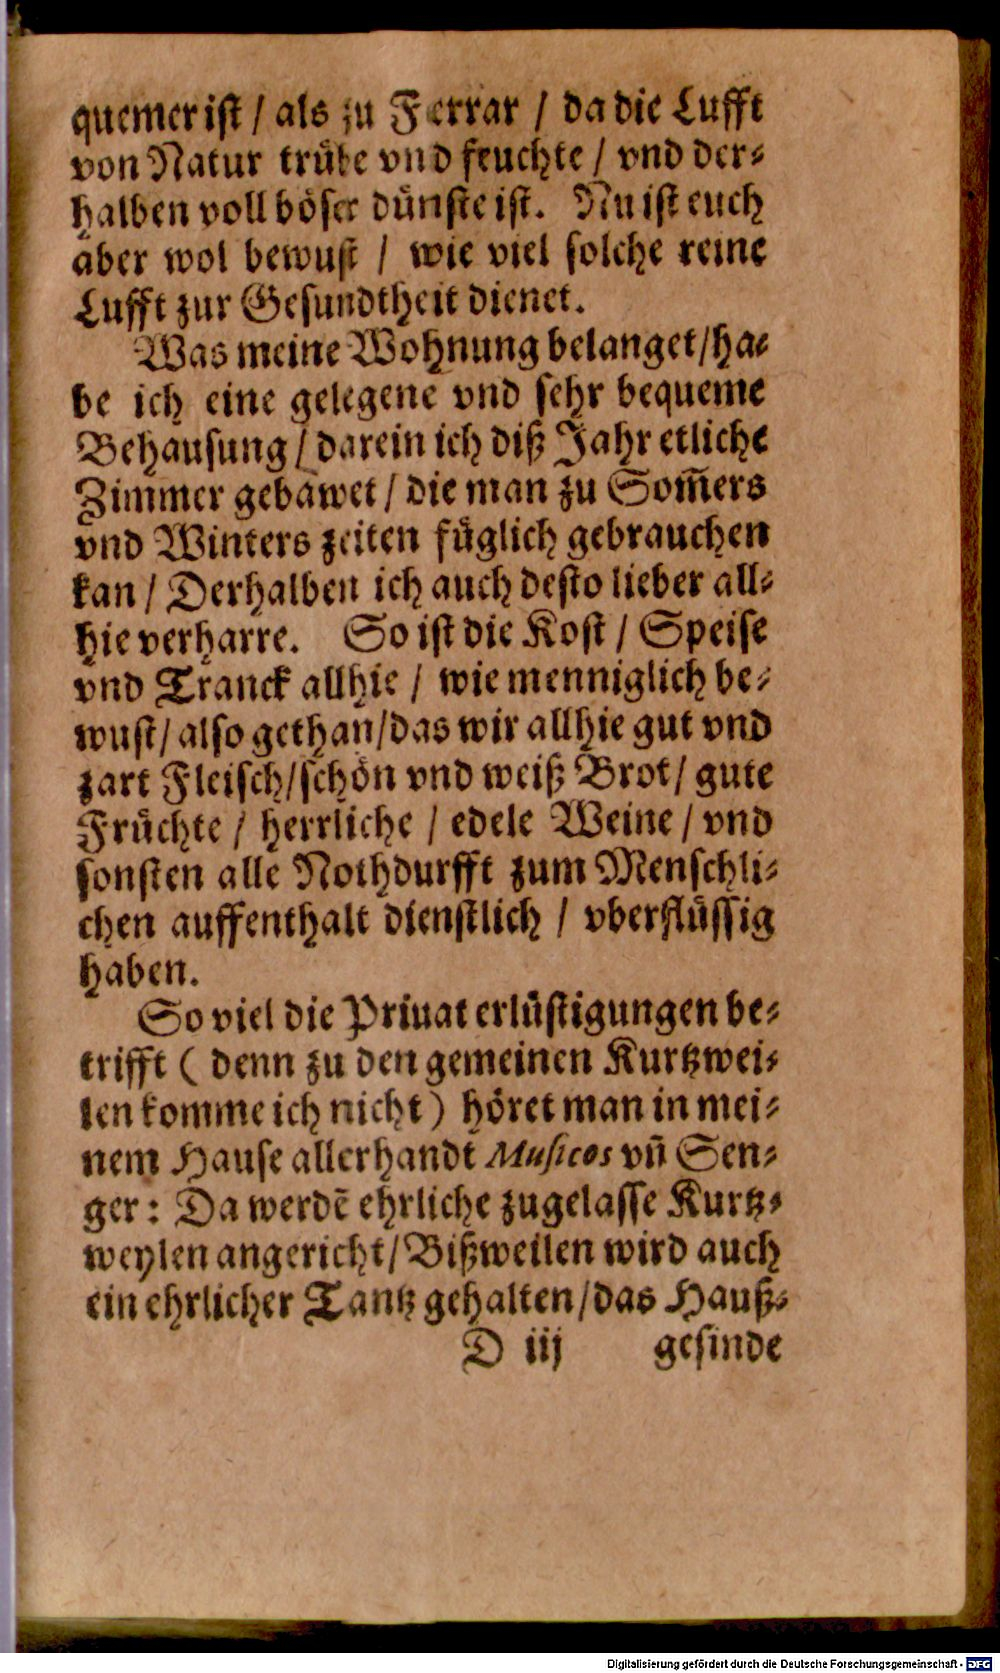 quemer ist / als zu Ferrar / da die Lufft
von Natur trübe vnd feuchte / vnd der-
halben voll böser dünste ist. Nu ist euch
aber wol bewust / wie viel solche reine
Lufft zur Gesundtheit dienet.
Was meine Wohnung belanget / ha-
be ich eine gelegene vnd sehr bequeme
Behausung / darein ich diß Jahr etliche
Zimmer gebawet / die man zu Som̃ers
vnd Winters zeiten füglich gebrauchen
kan / Derhalben ich auch desto lieber all-
hie verharre. So ist die Kost / Speise
vnd Tranck allhie / wie menniglich be-
wust / also gethan / das wir allhie gut vnd
zart Fleisch / schön vnd weiß Brot / gute
Früchte / herrliche / edele Weine / vnd
sonsten alle Nothdurfft zum Menschli-
chen auffenthalt dienstlich / vberflüssig
haben.
So viel die Priuat erlüstigungen be-
trifft ( denn zu den gemeinen Kurtzwei-
len komme ich nicht ) höret man in mei-
nem Hause allerhandt Musicos vñ Sen-
ger : Da werdē ehrliche zugelasse Kurtz-
weylen angericht / Bißweilen wird auch
ein ehrlicher Tantz gehalten / das Hauß-
D iij gesinde
Digitalisierung gefördert durch die Deutsche Forschungsgemeinschaft - DFG